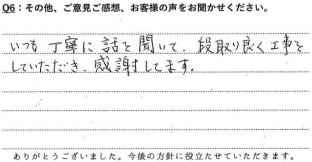 Q6：その他、ご意見ご感想、お客様の声をお聞かせください。
いつも丁寧に話を聞いて、段取り良く工事を
していただき、感謝してます。
ありがとうございました。今後の方針に役立たせていただきます。